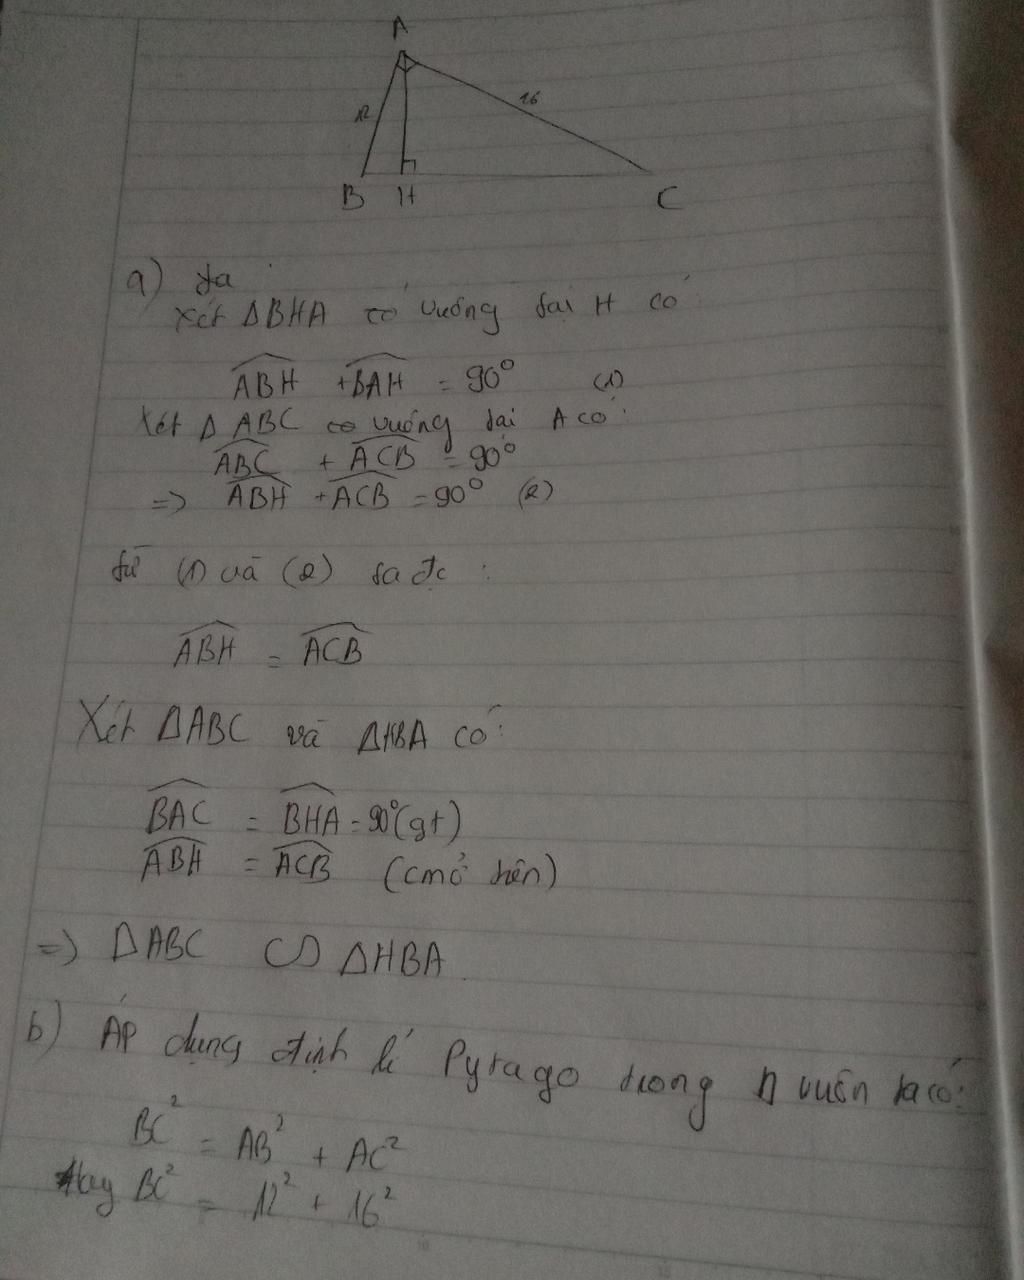 A
12
16
B H C
a) ta
Xét ΔBHA có vuông tại H có
ABH + BAH = 90° (1)
Xét Δ ABC có vuông tại A có:
ABC + ACB = 90°
=> ABH + ACB = 90° (2)
từ (1) và (2) ta đc :
ABH = ACB
Xét ΔABC và ΔHBA có:
BAC = BHA = 90° (gt)
ABH = ACB (cmở trên)
=> ΔABC ∽ ΔHBA
b) Áp dụng định lí Pytago trong Δ vuôn ta có:
BC² = AB² + AC²
Hay BC² = 12² + 16²